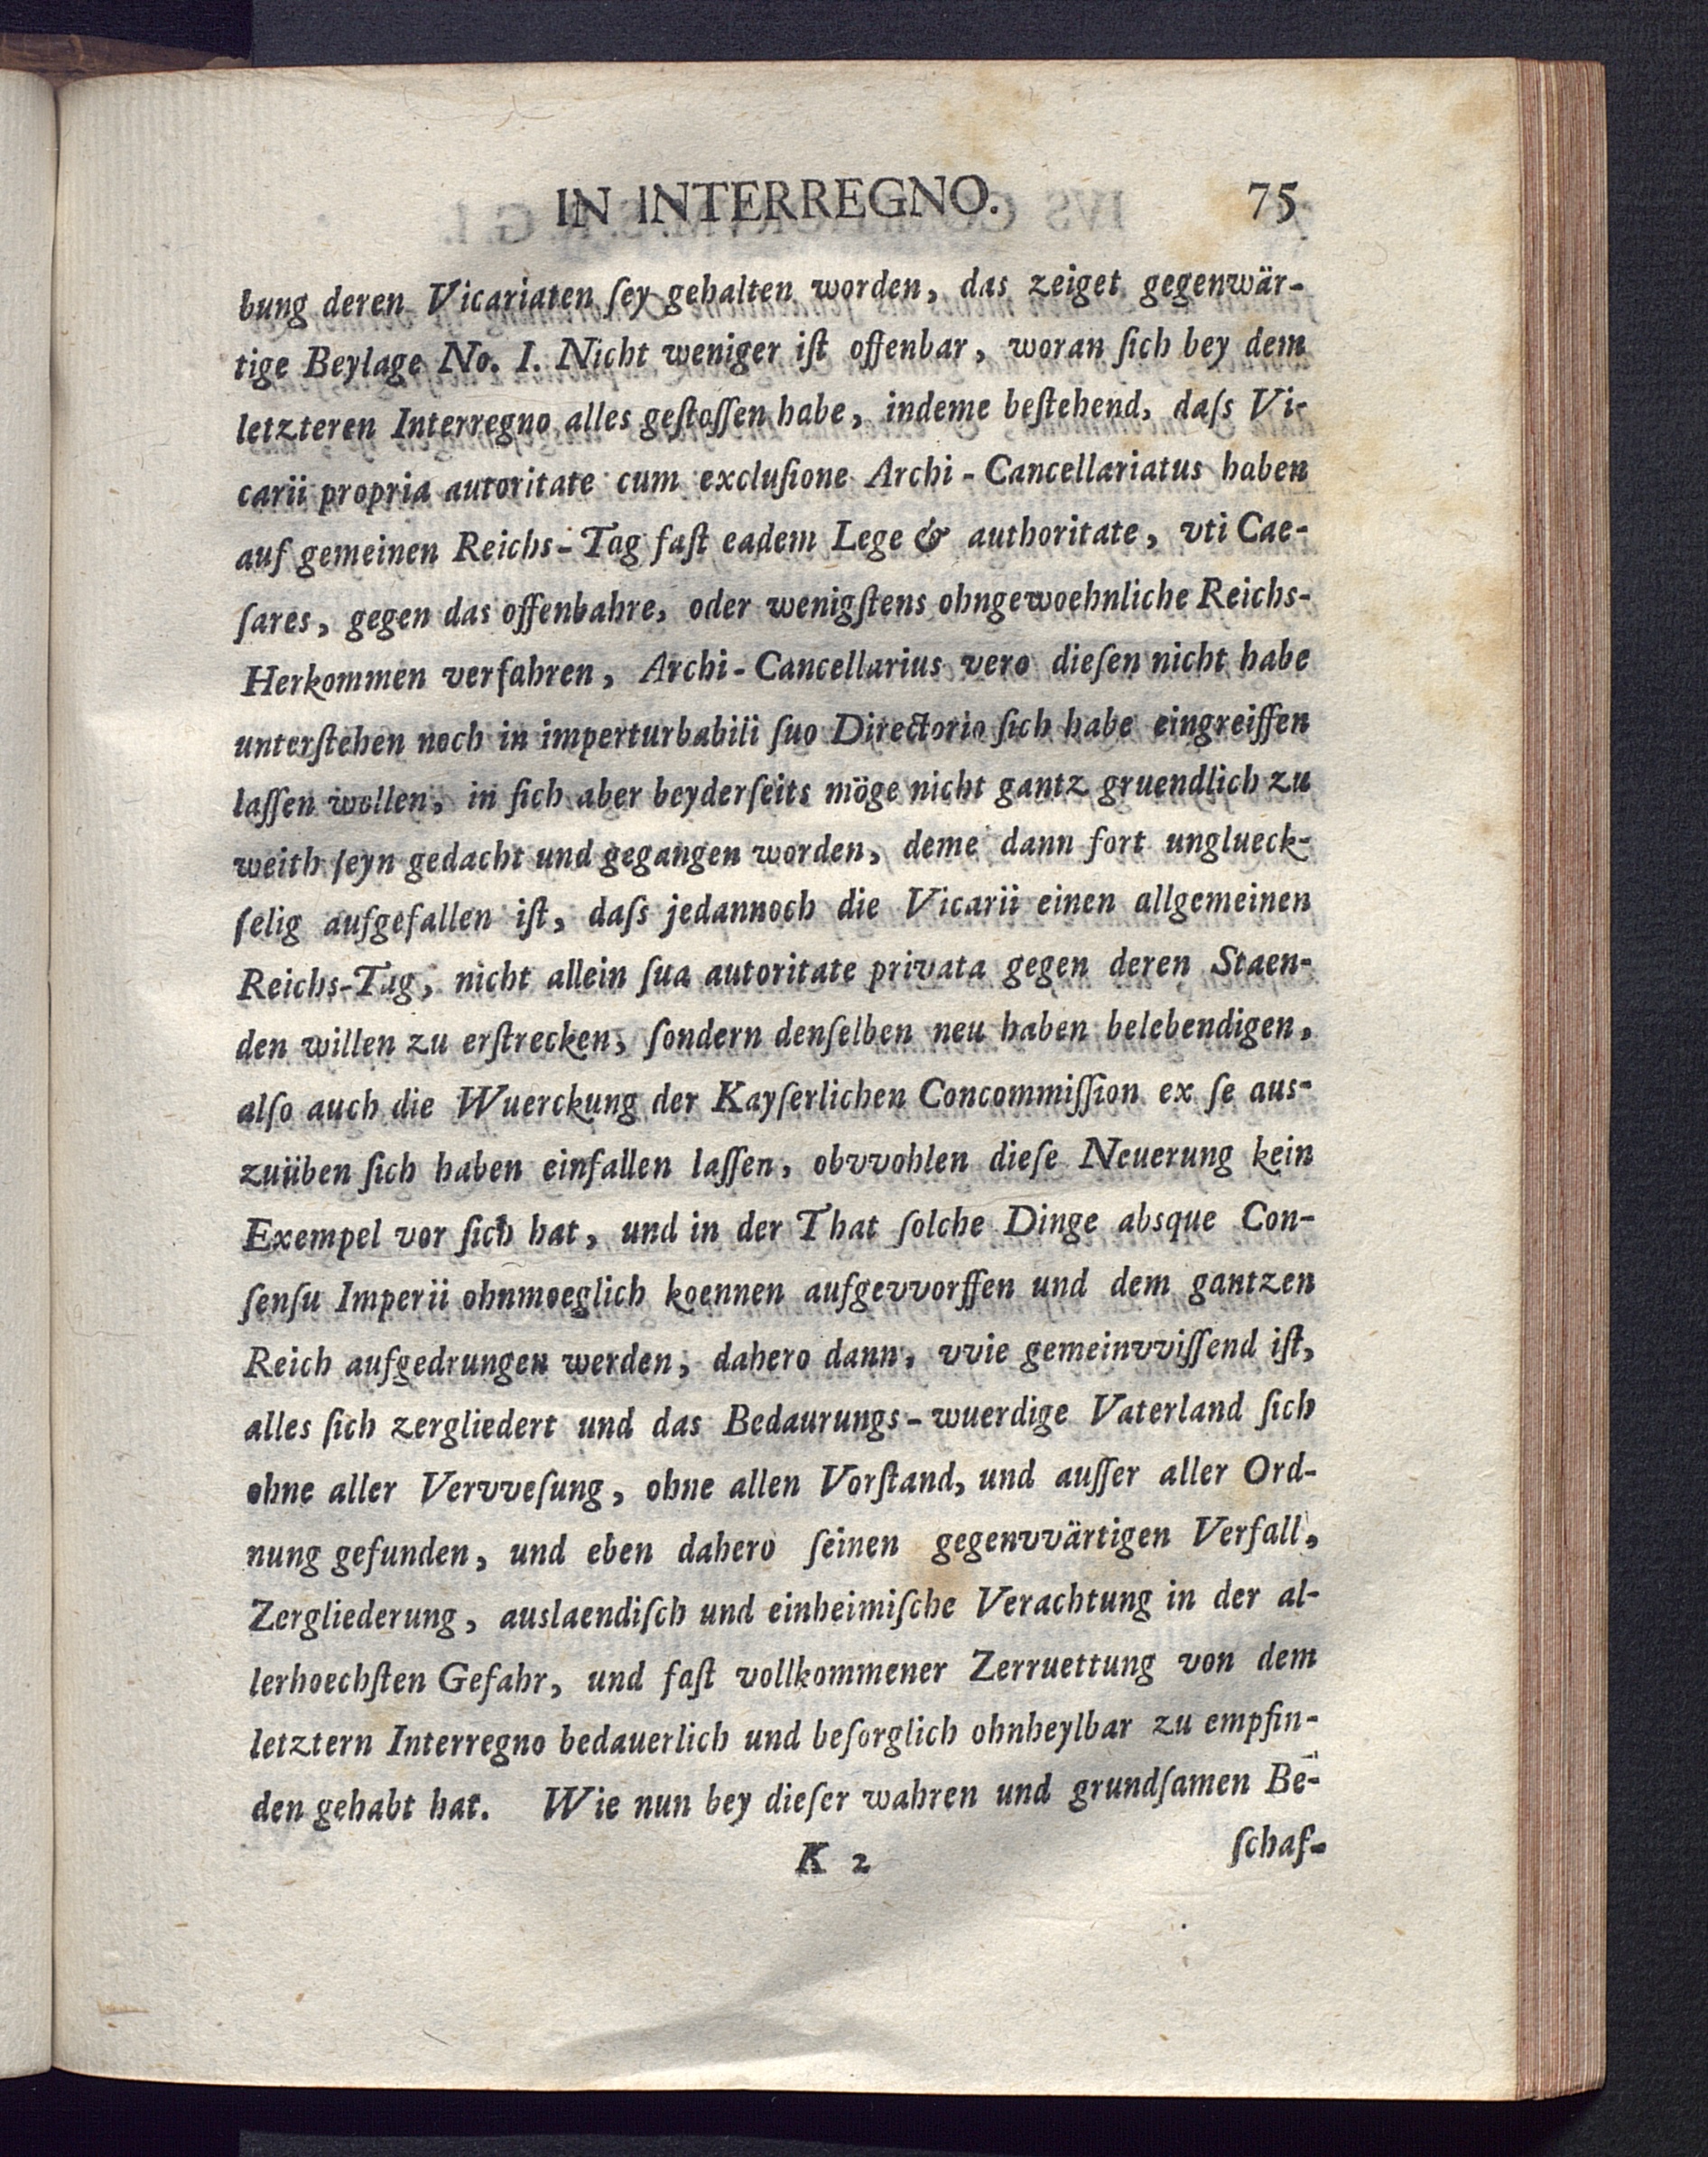 IN INTERREGNO. 75
bung deren Vicariaten ſey gehalten worden, das zeiget gegenwär-
tige Beylage No. I. Nicht weniger iſt offenbar, woran ſich bey dem
letzteren Interregno alles geſtoſſen habe, indeme beſtehend, daſs Vi-
carii propria autoritate cum excluſione Archi-Cancellariatus haben
auf gemeinen Reichs-Tag faſt eadem Lege & authoritate, vti Cae-
ſares, gegen das offenbahre, oder wenigſtens ohngewoehnliche Reichs-
Herkommen verfahren, Archi-Cancellarius vero dieſen nicht habe
unterſtehen noch in imperturbabili ſuo Directorio ſich habe eingreiffen
laſſen wollen, in ſich aber beyderſeits möge nicht gantz gruendlich zu
weith ſeyn gedacht und gegangen worden, deme dann fort unglueck-
ſelig aufgefallen iſt, daſs jedannoch die Vicarii einen allgemeinen
Reichs-Tag, nicht allein ſua autoritate privata gegen deren Staen-
den willen zu erſtrecken, ſondern denſelben neu haben belebendigen,
alſo auch die Wuerckung der Kayſerlichen Concommiſſion ex ſe aus-
zuüben ſich haben einfallen laſſen, obvvohlen dieſe Neuerung kein
Exempel vor ſich hat, und in der That ſolche Dinge absque Con-
ſenſu Imperii ohnmoeglich koennen aufgevvorffen und dem gantzen
Reich aufgedrungen werden, dahero dann, vvie gemeinvviſſend iſt,
alles ſich zergliedert und das Bedaurungs-wuerdige Vaterland ſich
ohne aller Vervveſung, ohne allen Vorſtand, und auſſer aller Ord-
nung gefunden, und eben dahero ſeinen gegenvvärtigen Verfall,
Zergliederung, auslaendiſch und einheimiſche Verachtung in der al-
lerhoechſten Gefahr, und faſt vollkommener Zerruettung von dem
letztern Interregno bedauerlich und beſorglich ohnheylbar zu empfin-
den gehabt hat. Wie nun bey dieſer wahren und grundſamen Be-
K 2 ſchaf-